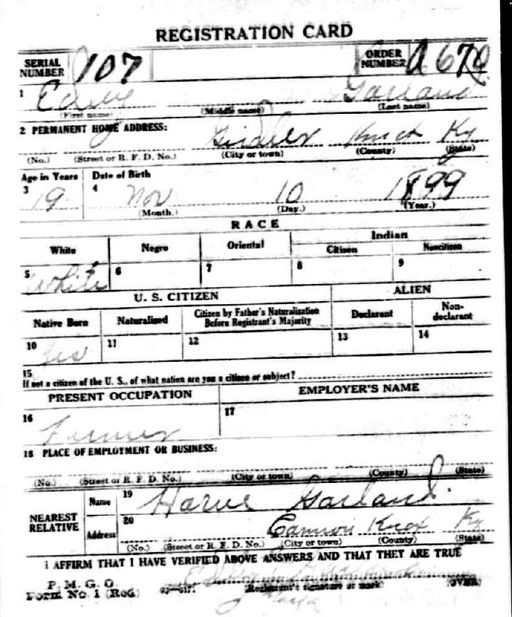 REGISTRATION CARD
SERIAL NUMBER 107 ORDER NUMBER A 670
1 Garland
(First name) (Middle name) (Last name)
2 PERMANENT HOME ADDRESS: Girdler Knox Ky
(No.) (Street or R. F. D. No.) (City or town) (County) (State)
Age in Years Date of Birth
3 19 4 Nov 10 1899
(Month.) (Day.) (Year.)
RACE
White Negro Oriental Indian
Citizen Noncitizen
5 White 6 7 8 9
U. S. CITIZEN ALIEN
Native Born Naturalized Citizen by Father's Naturalization Before Registrant's Majority Declarant Non-declarant
10 Yes 11 12 13 14
15
If not a citizen of the U. S., of what nation are you a citizen or subject?
PRESENT OCCUPATION EMPLOYER'S NAME
16 Farmer 17
18 PLACE OF EMPLOYMENT OR BUSINESS:
(No.) (Street or R. F. D. No.) (City or town) (County) (State)
NEAREST RELATIVE Name 19 Harve Garland
Address 20 Cannon Knox Ky
(No.) (Street or R. F. D. No.) (City or town) (County) (State)
I AFFIRM THAT I HAVE VERIFIED ABOVE ANSWERS AND THAT THEY ARE TRUE
P. M. G. O.
Form No. 1 (Red) Registrant's signature or mark (OVER)